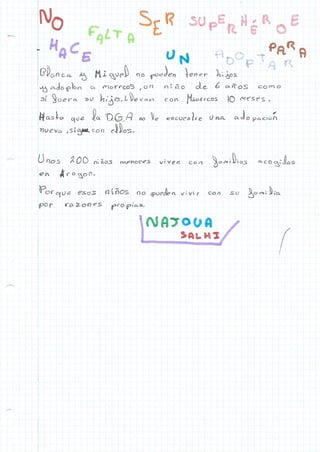 NO HACE FALTA SER UN SUPERHÉROE PARA ADOPTAR
Blanca y Miguel no pueden tener hijos
y adoptan a morreos, un niño de 6 años como
si fuera su hijo. Llevan con Marcos 10 meses.
Hasta que la D.G.A no le encuentre una adopación
nueva, sigue con ellos.
Unos 200 niños menores viven con familias acogidas
en Aragon.
Porque esos niños no pueden vivir con su familia
por razones propias.
NAJOUA
SALHI